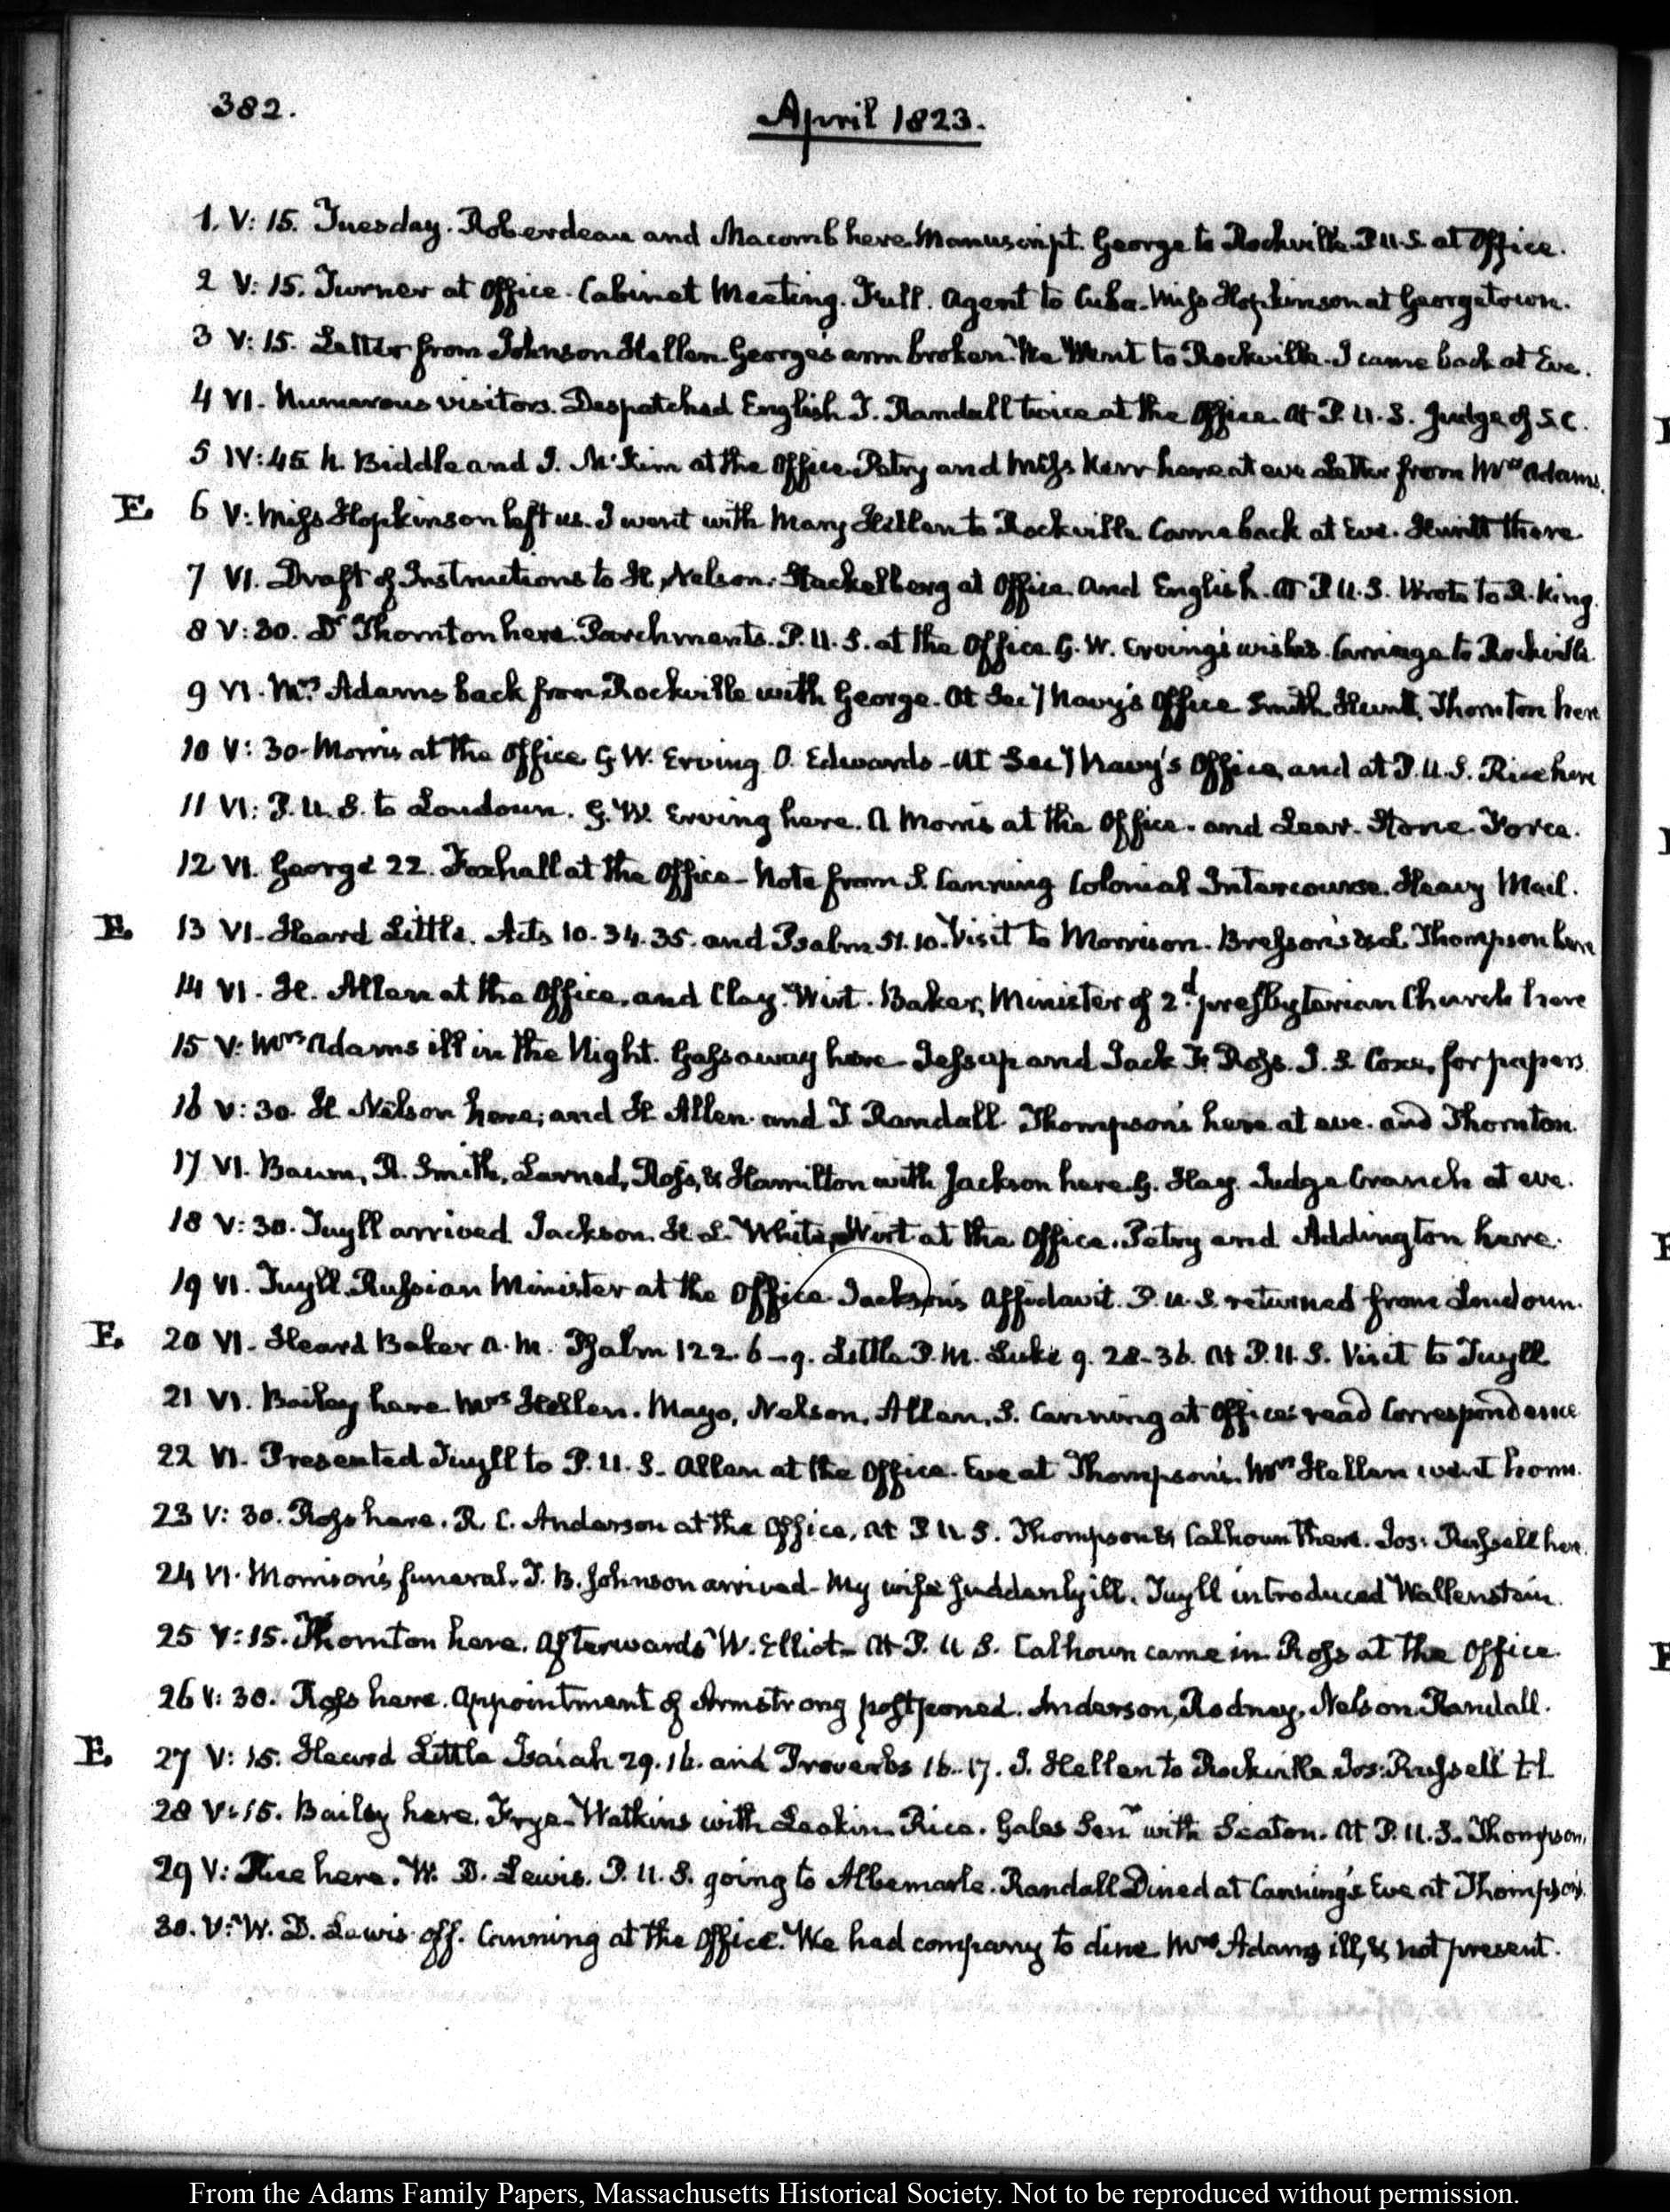 382.
April 1823.
1. V: 15. Tuesday. Roberdeau and Macomb here. Manuscript. George to Rockville. P.U.S. at Office.
2 V: 15. Turner at Office. Cabinet Meeting. Full. Agent to Cuba. Miss Hopkinson at Georgetown.
3 V: 15. Letter from Johnson Hellen. George's arm broken. We Went to Rockville. I came back at Eve.
4 VI. Numerous visitors. Despatched English. T. Randall twice at the Office. At P.U.S. Judge of S.C.
5 IV: 45 N. Biddle and I. McKim at the Office. Petry and Miss Kerr here at eve. Letter from Mrs Adams.
E. 6 V: Miss Hopkinson left us. I went with Mary Hellen to Rockville. Came back at Eve. there.
7 VI. Draft of Instructions to H. Nelson. Stackelberg at Office. And English. At P.U.S. Wrote to R. King.
8 V: 30. Dr Thornton here. Parchments. P.U.S. at the Office. G. W. Erving's wishes. Carriage to Rockville.
9 VI. Mrs Adams back from Rockville with George. At Secy Navy's Office. Smith. Hunt, Thornton here
10 V: 30. Morris at the Office. G. W. Erving. Edwards - At Secy Navy's Office, and at P.U.S. Rice here
11 VI: P.U.S. to Loudoun. G. W. Erving here. Morris at the Office. and Lear. Stone. Force.
12 VI. George 22. Foxhall at the Office - Note from S. Canning. Colonial Intercourse. Heavy Mail.
E. 13 VI. Heard Little. Acts 10. 34. 35. and Psalm 51. 10. Visit to Morrison. Bresson's & Thompson here
14 VI. H. Allen at the Office, and Clay. Wirt. Baker, Minister of 2d presbyterian Church here
15 V: Mrs Adams ill in the Night. Gassaway here - Jessup and Jack F. Ross. J. S. Coxe, for papers.
16 V: 30. H Nelson here; and H Allen. and T Randall. Thompson's here at eve. and Thornton.
17 VI. Baum, R. Smith, Larned, Ross, & Hamilton with Jackson here. G. Hay. Judge Cranch at eve.
18 V: 30. Tuyll arrived. Jackson. H. L. White, Wirt at the Office. Petry and Addington here.
19 VI. Tuyll Russian Minister at the Office. Jackson's Affidavit. P.U.S. returned from Loudoun.
E. 20 VI. Heard Baker A.M. Psalm 122. 6-9. Little P.M. Luke 9. 28-36. At P.U.S. Visit to Tuyll
21 VI. Bailey here. Mrs Hellen. Mayo, Nelson, Allen, S. Canning at Office: read Correspondence
22 VI. Presented Tuyll to P.U.S. Allen at the Office. Eve at Thompson's. Mrs Hellen went home.
23 V: 30. Ross here. R. C. Anderson at the Office. At P.U.S. Thompson & Calhoun there. Jos: Russell here.
24 VI. Morrison's funeral. T. B. Johnson arrived - My wife suddenly ill. Tuyll introduced Wallenstein.
25 V: 15. Thornton here. Afterwards W. Elliot - At P.U.S. Calhoun came in. Ross at the Office.
26 V: 30. Ross here. Appointment of Armstrong postponed. Anderson, Rodney, Nelson. Randall.
E. 27 V: 15. Heard Little Isaiah 29. 16. and Proverbs 16. 17. J. Hellen to Rockville. Jos: Russell
28 V: 15. Bailey here. Frye. Watkins with Leakin. Rice. Gales Senr with Seaton. At P.U.S. Thompson.
29 V: Rice here. W. D. Lewis. P.U.S. going to Albemarle. Randall. Dined at Canning's. Eve at Thompson's.
30. V: W. D. Lewis off. Canning at the Office. We had company to dine. Mrs Adams ill, & not present.
From the Adams Family Papers, Massachusetts Historical Society. Not to be reproduced without permission.